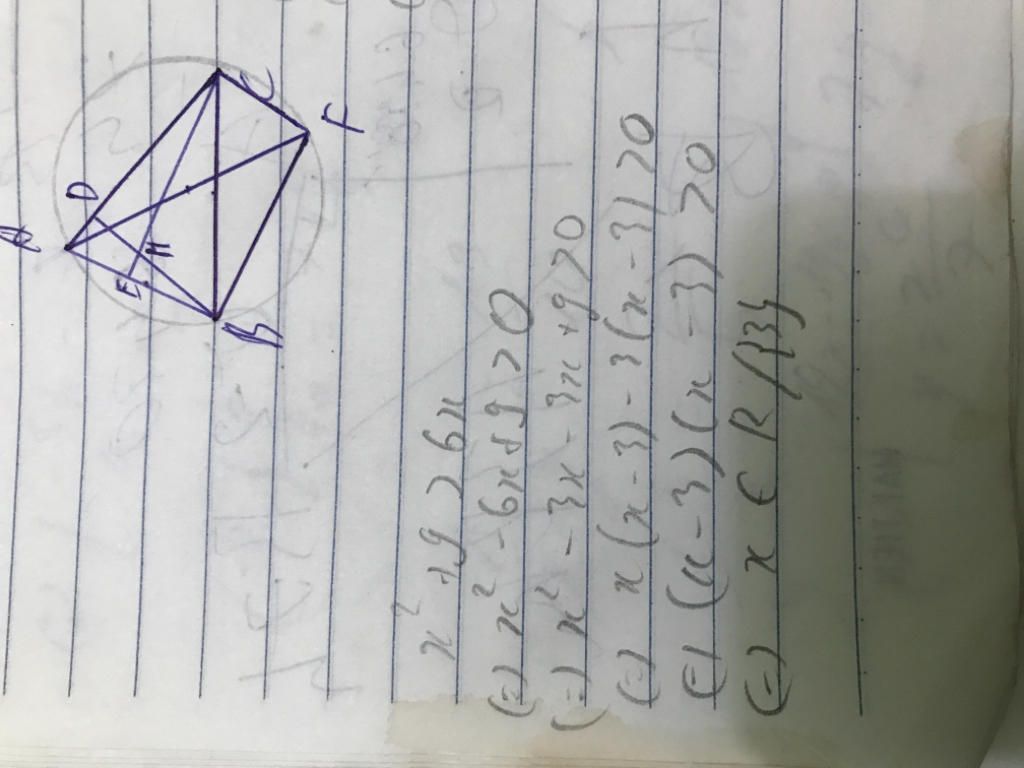 A
D
E
H
B
C
F
x² + 9 > 6x
(=) x² - 6x + 9 > 0
(=) x² - 3x - 3x + 9 > 0
(=) x(x - 3) - 3(x - 3) > 0
(=) (x - 3)(x - 3) > 0
(=) x ∈ R/{3}